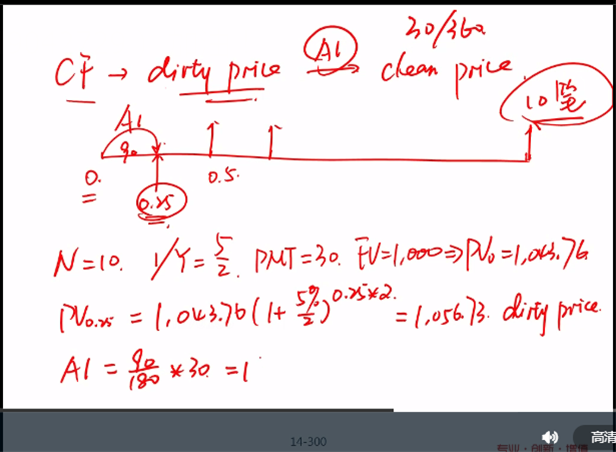 30/360
CF → dirty price AI clean price
AI 10笔
90
0. 0.25 0.5.
N=10. I/Y=5/2. PMT=30. FV=1,000⇒PV₀=1,043.76
PV0.25 = 1,043.76(1+5%/2)^0.25*2. = 1,056.73. dirty price.
AI = 90/180 * 30 = 1
14-300
高清